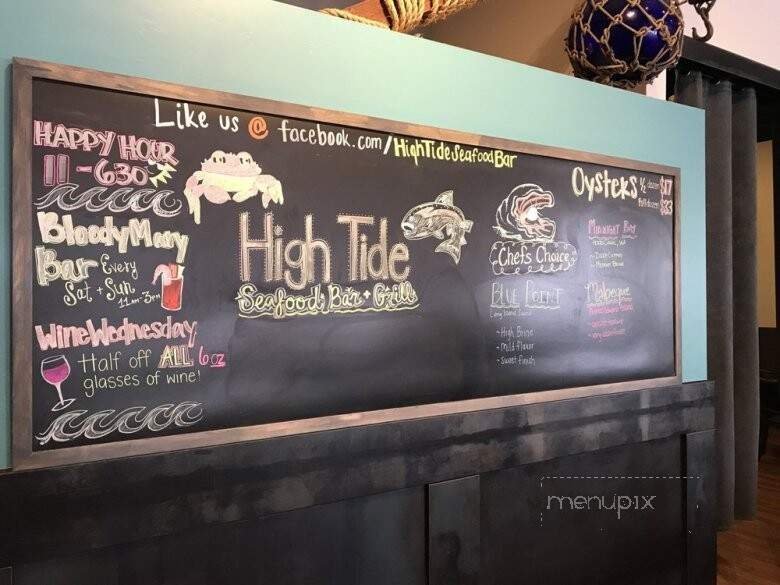 Like us @ facebook.com/HighTideSeafoodBar
HAPPY HOUR
11-630
Bloody Mary
Bar Every
Sat + Sun
11am-3pm
Wine Wednesday
Half off ALL 6oz
glasses of wine!
High Tide
Seafood Bar + Grill
Oysters 1/2 dozen $17
full dozen $33
Chefs Choice
BLUE POINT
Long Island Sound
- High Brine
- Mild flavor
- sweet finish
MIDNIGHT BAY
Malpeque
menupix